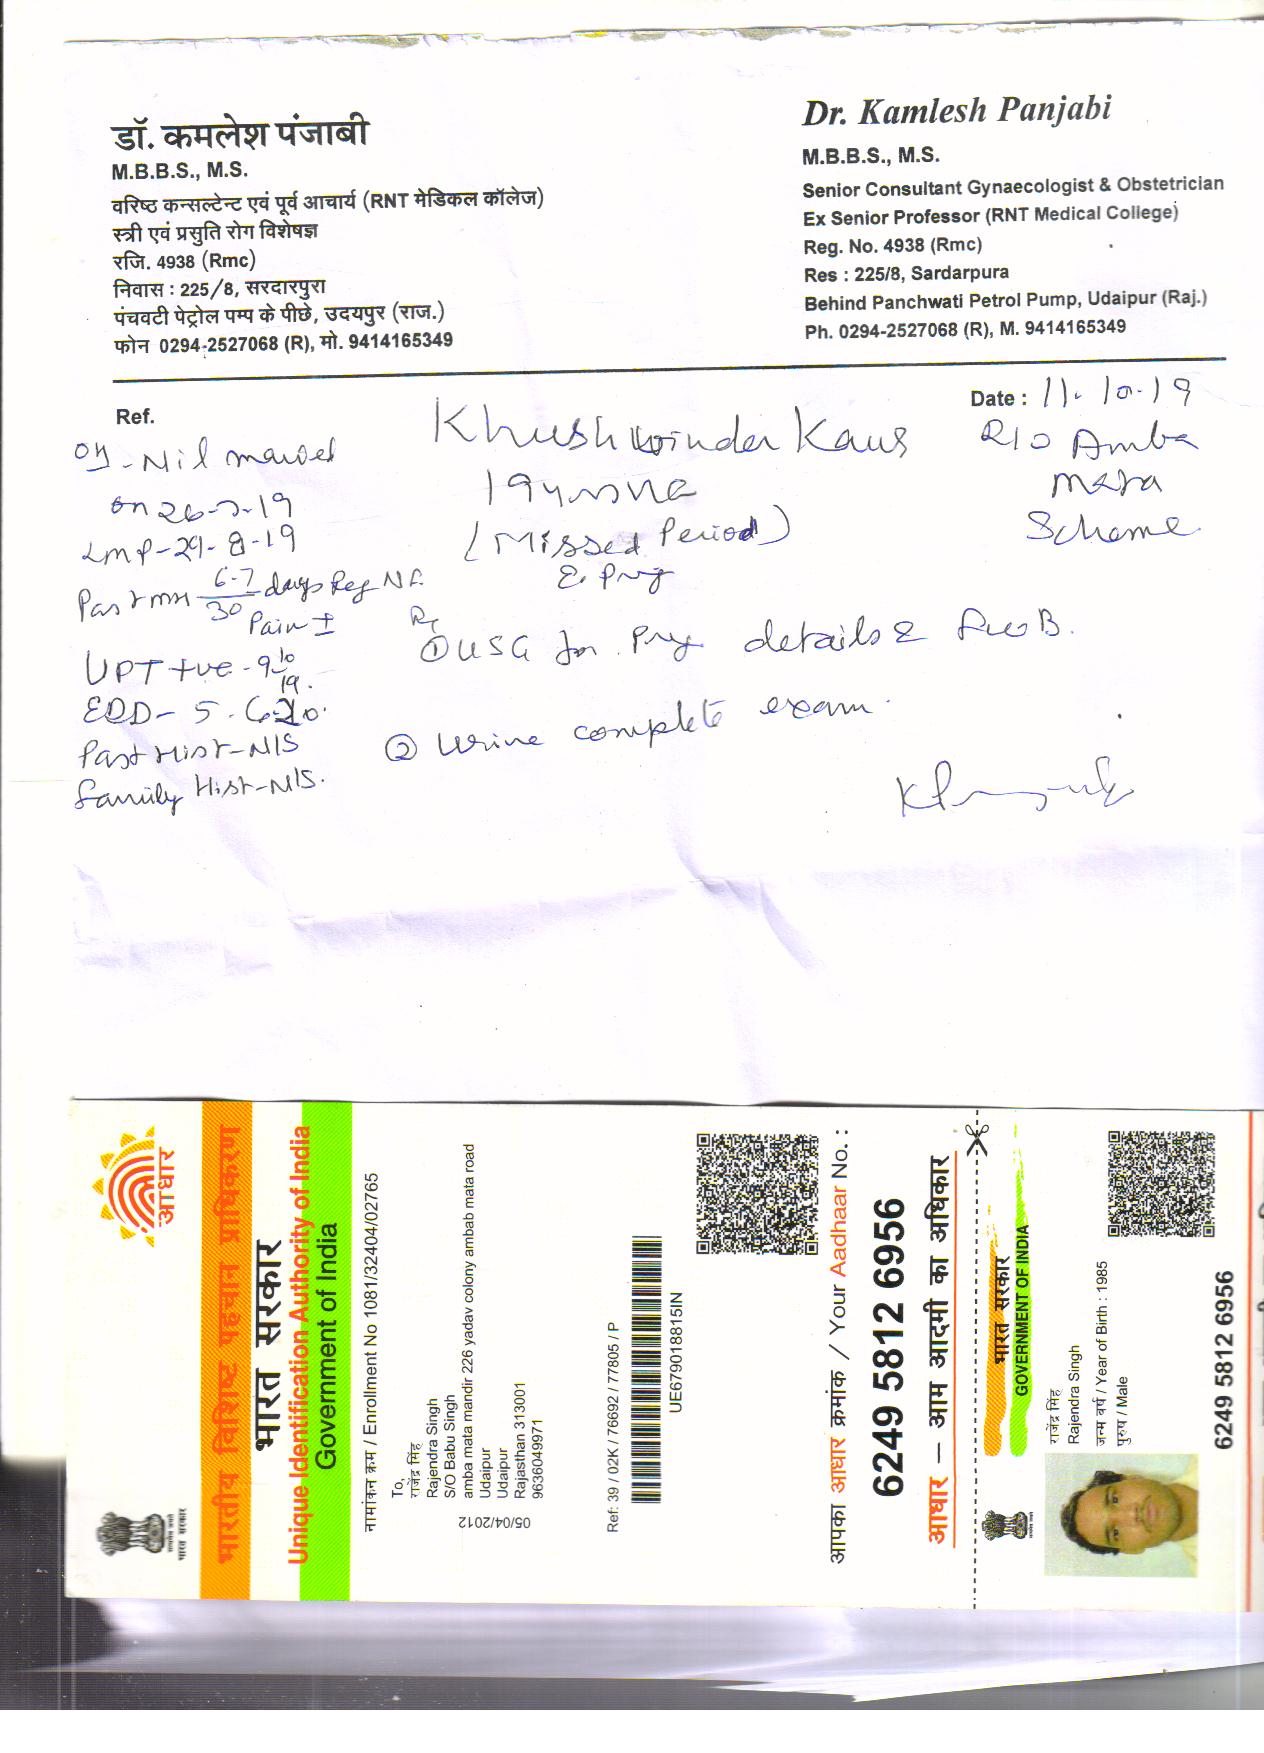 डॉ. कमलेश पंजाबी
M.B.B.S., M.S.
वरिष्ठ कन्सल्टेन्ट एवं पूर्व आचार्य (RNT मेडिकल कॉलेज)
स्त्री एवं प्रसुति रोग विशेषज्ञ
रजि. 4938 (Rmc)
निवास : 225/8, सरदारपुरा
पंचवटी पेट्रोल पम्प के पीछे, उदयपुर (राज.)
फोन 0294-2527068 (R), मो. 9414165349
Dr. Kamlesh Panjabi
M.B.B.S., M.S.
Senior Consultant Gynaecologist & Obstetrician
Ex Senior Professor (RNT Medical College)
Reg. No. 4938 (Rmc)
Res : 225/8, Sardarpura
Behind Panchwati Petrol Pump, Udaipur (Raj.)
Ph. 0294-2527068 (R), M. 9414165349
Ref.
Date : 11-10-19
Khushwinder Kaur
(Missed Period)
E. Prg
R/O Amba
mata
Scheme
Nil
on 26-7-19
LMP-29-8-19
Past MH 6-7/30 days Reg NF.
Pain ±
UPT +ve - 9/10/19.
EDD- 5.6.20.
Past Hist-NIS
Family Hist-NIS.
Rx
① USG for Prg. details &
② Urine complete exam.
आधार
भारतीय विशिष्ट पहचान प्राधिकरण
भारत सरकार
Unique Identification Authority of India
Government of India
नामांकन क्रम / Enrollment No 1081/32404/02765
To,
राजेंद्र सिंह
Rajendra Singh
S/O Babu Singh
amba mata mandir 226 yadav colony ambab mata road
Udaipur
Udaipur
Rajasthan 313001
9636049971
05/04/2012
Ref: 39 / 02K / 76692 / 77805 / P
UE679018815IN
आपका आधार क्रमांक / Your Aadhaar No. :
6249 5812 6956
आधार – आम आदमी का अधिकार
भारत सरकार
GOVERNMENT OF INDIA
राजेंद्र सिंह
Rajendra Singh
जन्म वर्ष / Year of Birth : 1985
पुरुष / Male
6249 5812 6956